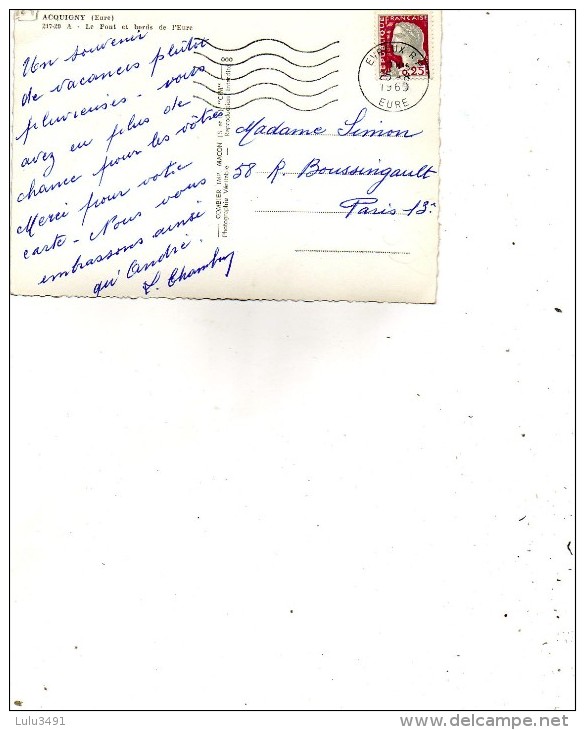 ACQUIGNY (Eure)
217-29 A - Le Pont et bords de l'Eure
Un souvenir
de vacances plutôt
pluvieuses - vous
avez eu plus de
chance pour les vôtres
Merci pour votre
carte - Nous vous
embrassons ainsi
qu'André.
L. Chambry
COMBIER IMP. MACON (S.-et-L.) "CIM"
Photographie Véritable - Reproduction Interdite
RÉPUBLIQUE FRANÇAISE
0,25
EVREUX R.P.
1960
EURE
Madame Simon
58 R. Boussingault
Paris 13e
Lulu3491
www.delcampe.net